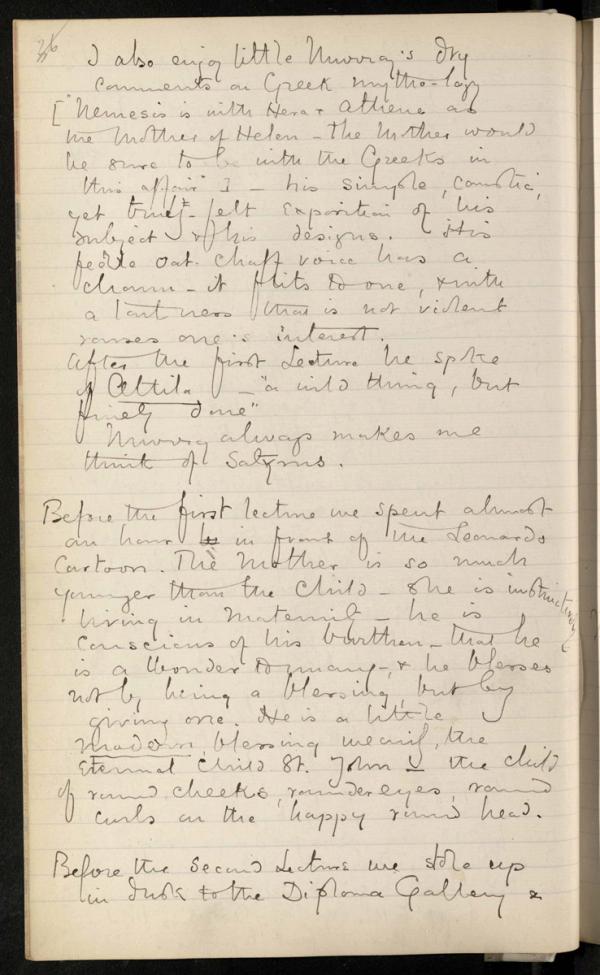 26
I also enjoy little Murray's dry
comments on Greek mytho-logy
["Nemesis is with Hera & Athene as
the Mother of Helen – the Mother would
be sure to be with the Greeks in
this affair"] – his simple, caustic,
yet truly-felt exposition of his
subject & of his designs. His
feeble oat-chaff voice has a
charm – it flits to one, & with
a tartness that is not violent
rouses one's interest.
After the first Lecture he spoke
of Attila – "a wild thing, but
finely done"
Murray always makes me
think of Satyrus.
Before the first lecture we spent almost
an hour in front of the Leonardo
Cartoon. The Mother is so much
younger than the Child – she is instinctively
living in Maternity – he is
conscious of his burthen – that he
is a Wonder to many –, & he blesses
not by being a blessing, but by
giving one. He is a little
modern, blessing weary, the
Eternal Child St. John is the child
of round cheeks, rounder eyes, round
curls on the happy round head.
Before the second Lecture we stole up
in dusk to the Diploma Gallery &